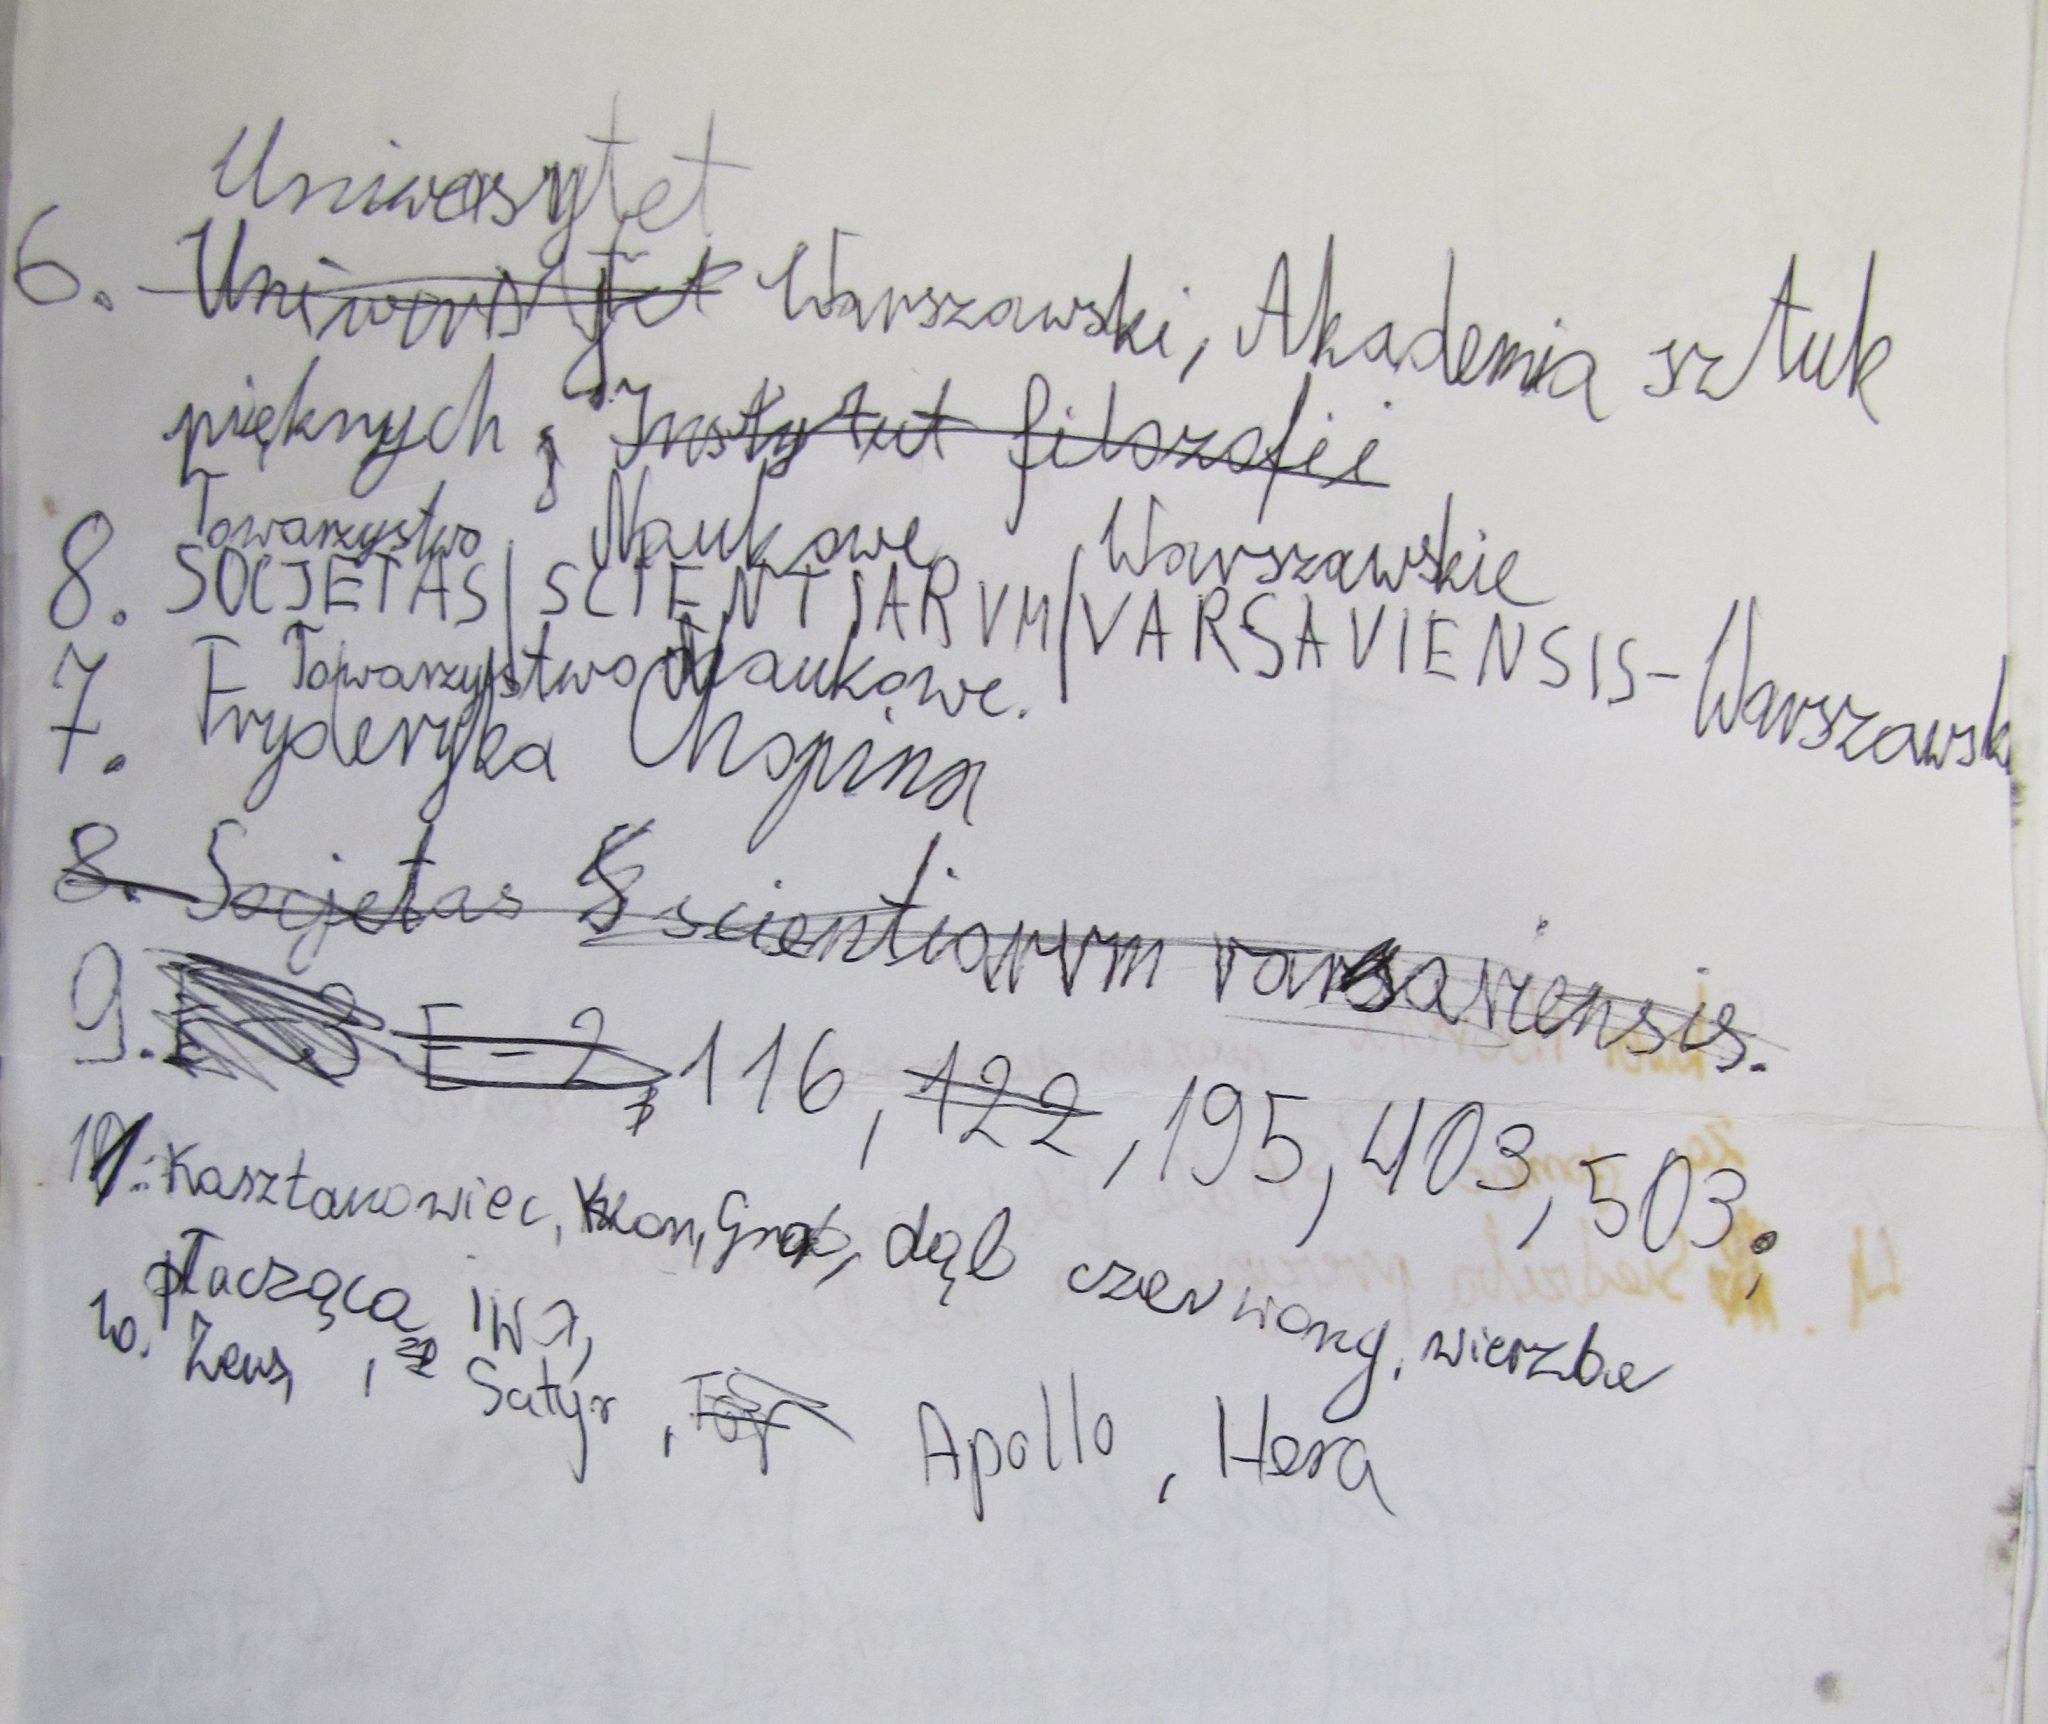 Uniwersytet
6. Uniwersytet Warszawski, Akademia sztuk
pięknych, Instytut filozofii
Towarzystwo Naukowe Warszawskie
8. SOCJETAS/SCIENTJARVM/VARSAVIENSIS-Warszawsk
Towarzystwo Naukowe.
7. Fryderyka Chopina
8. Socjetas Scientiarvm varsaviensis.
9. E-3 E-2, 116, 122, 195, 403, 503,
Kasztanowiec, Klon, Grab, dąb czerwony, wierzba
płacząca, iwa,
10. Zeus, Satyr, Apollo, Hera